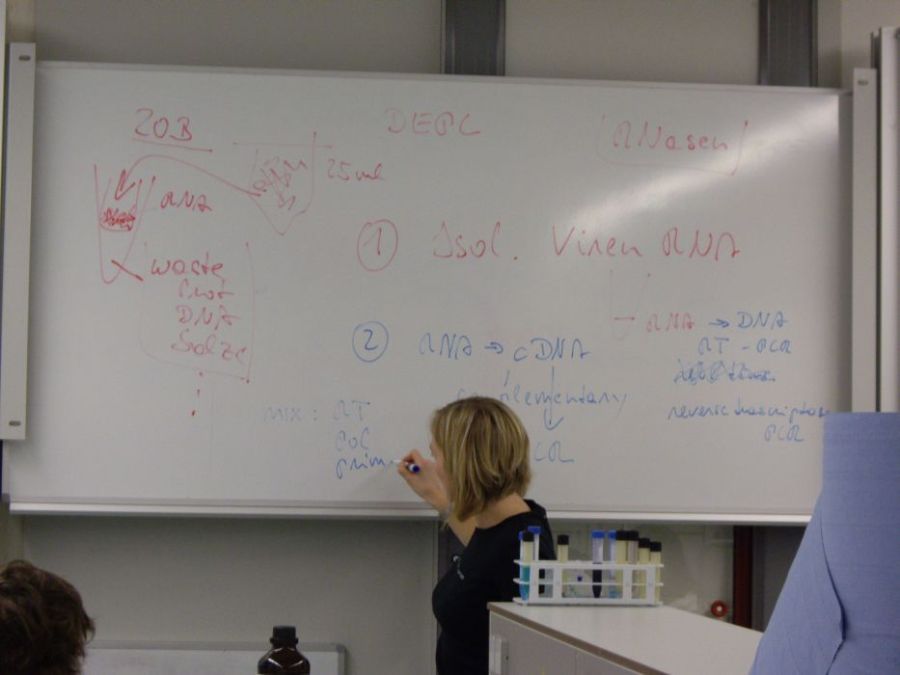 ZOB
DEPC
RNasen
25ml
RNA
waste
Prot
DNA
Salze
1 Isol. Viren RNA
RNA → DNA
RT - PCR
reverse transcriptase
PCR
2 RNA → cDNA
mix: RT
Pol
prim